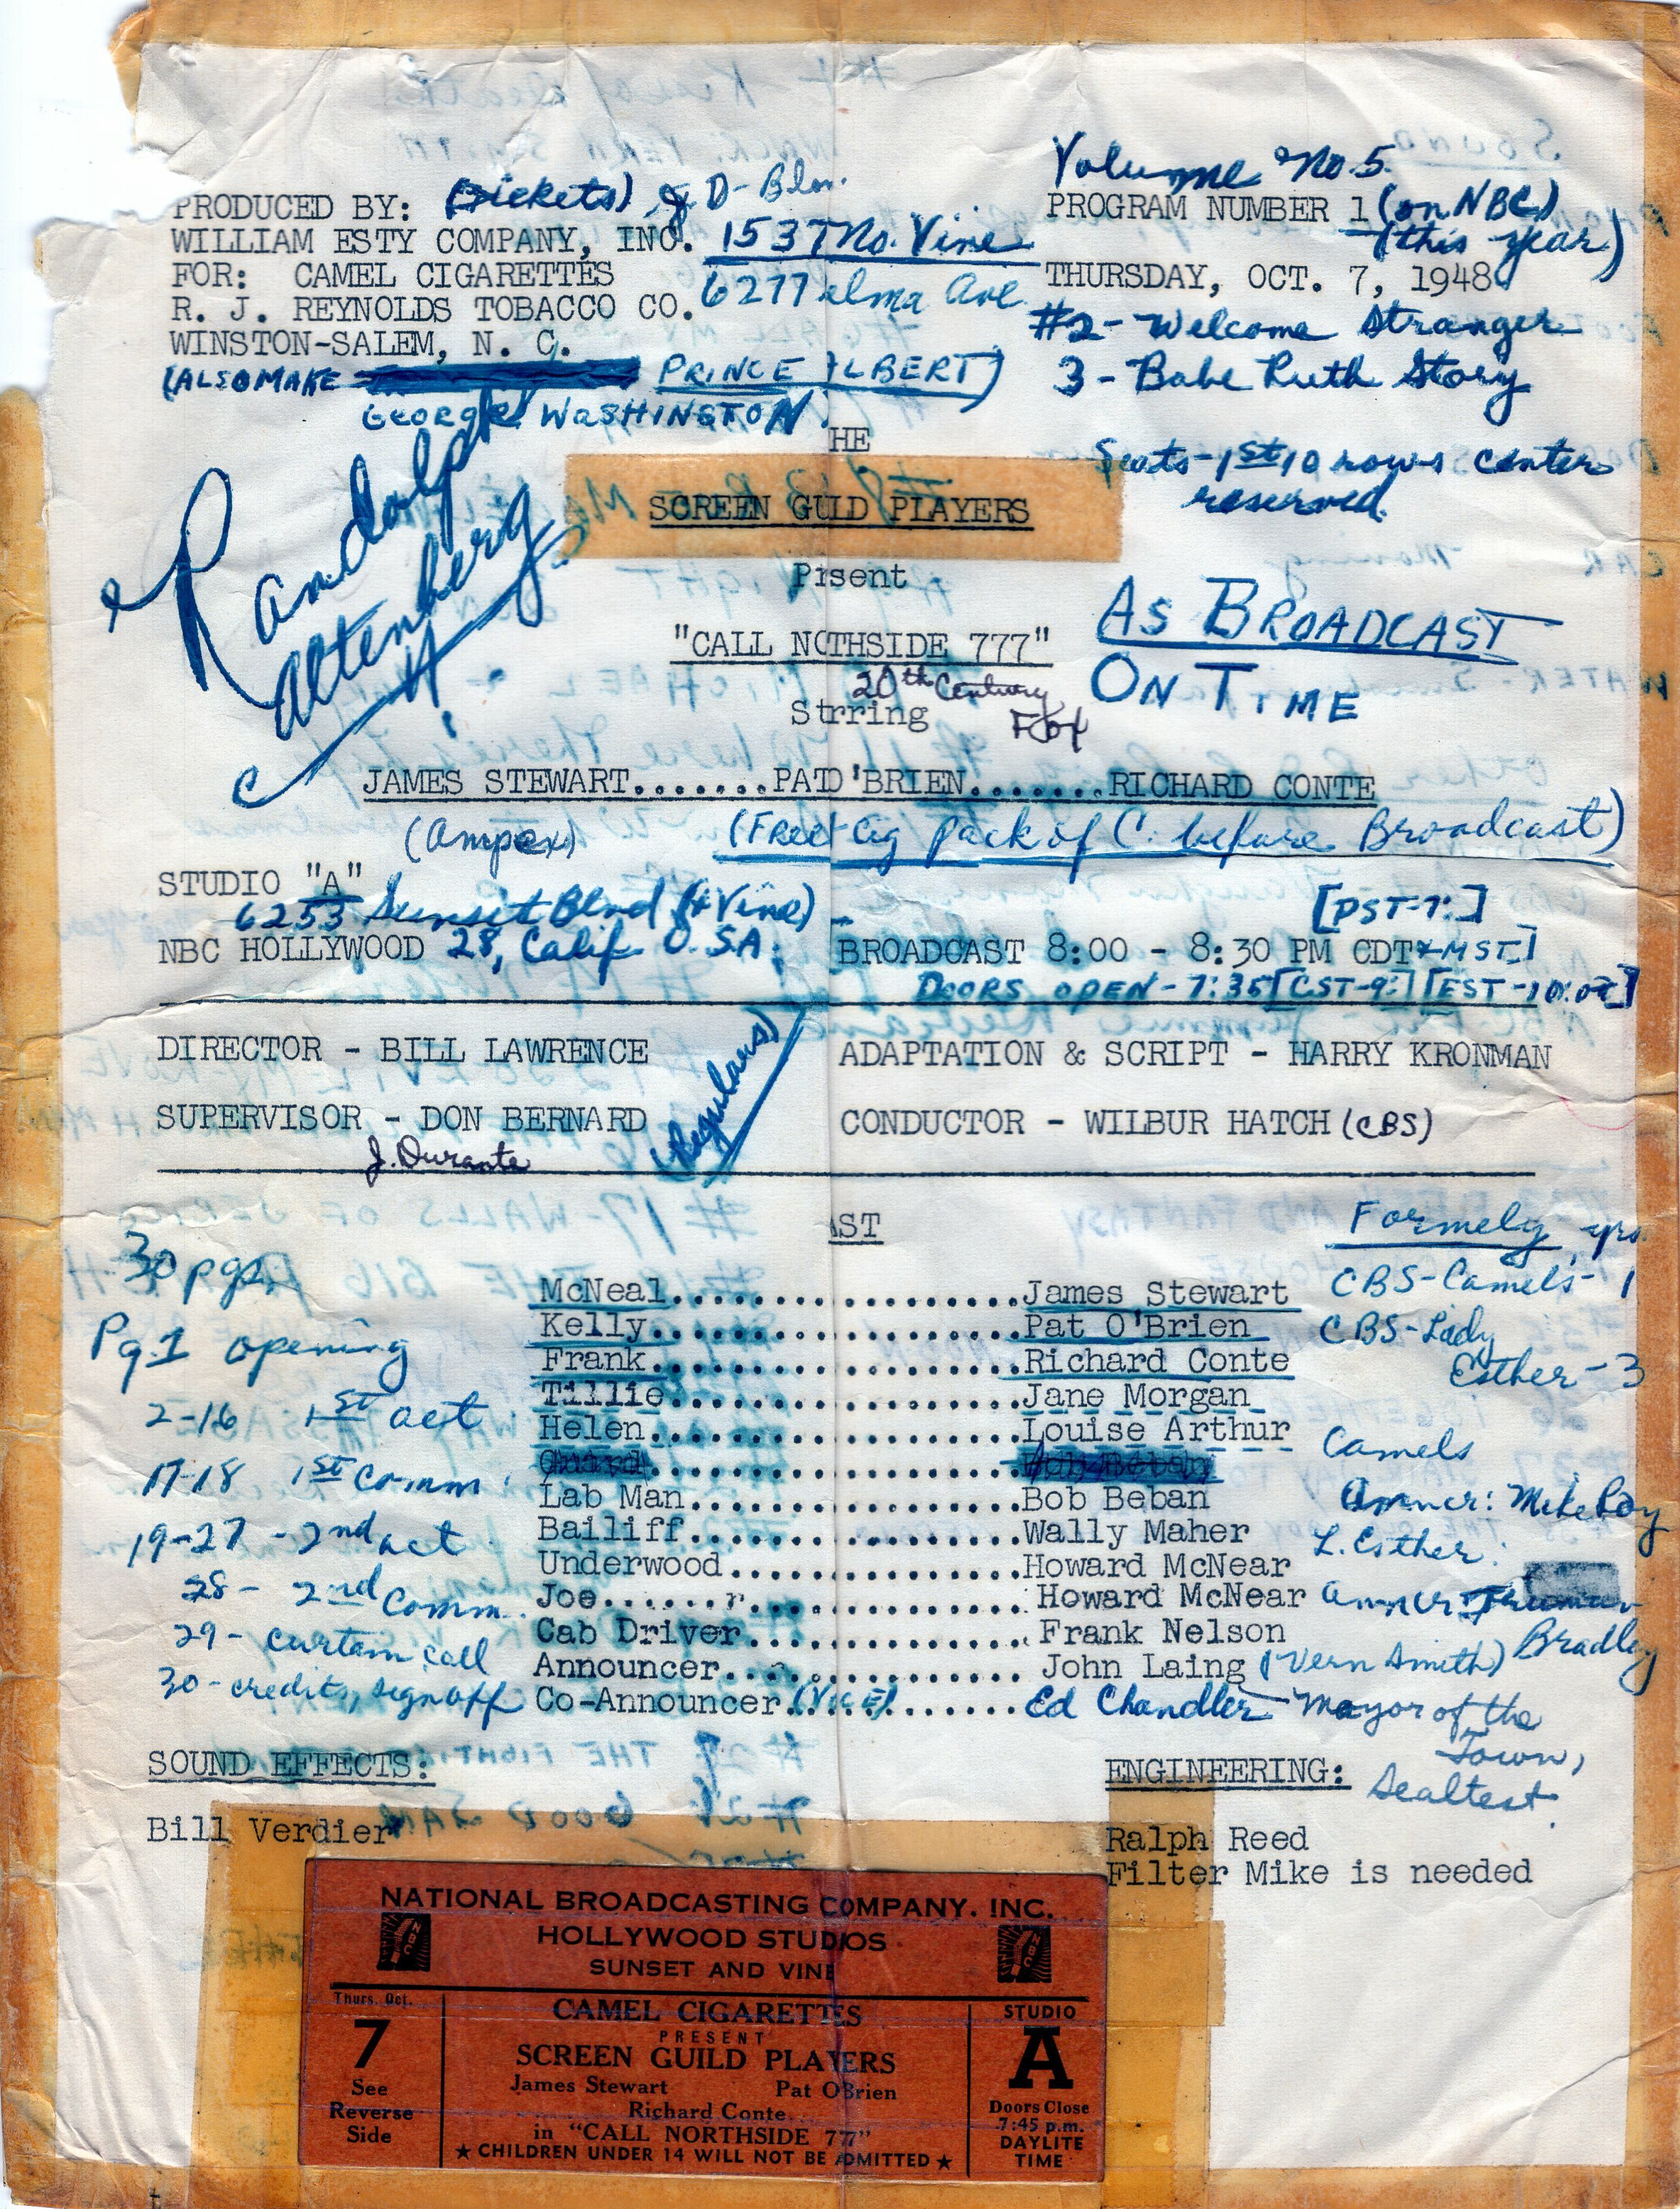 Volume No. 5.
PRODUCED BY: (Tickets)
PROGRAM NUMBER 1 (on NBC)
WILLIAM ESTY COMPANY, INC. 1537 No. Vine
(this year)
FOR: CAMEL CIGARETTES
6277 elma Ave
THURSDAY, OCT. 7, 1948
R. J. REYNOLDS TOBACCO CO.
#2 - Welcome Stranger
WINSTON-SALEM, N. C.
(ALSO MAKE PRINCE ALBERT)
3 - Babe Ruth Story
GEORGE WASHINGTON
HE
Seats - 1st 10 rows center
reserved.
SCREEN GULD PLAYERS
Randolph
Altenberg
Prsent
AS BROADCAST
"CALL NOTHSIDE 777"
20th Century
Fox
ON TIME
Strring
JAMES STEWART.......PATO'BRIEN.......RICHARD CONTE
(Ampex)
(Free Cig pack of C. before Broadcast)
STUDIO "A"
6253 Sunset Blvd (& Vine)
[PST-7:]
NBC HOLLYWOOD 28, Calif. U.S.A.
BROADCAST 8:00 - 8:30 PM CDT & MST]
DOORS OPEN - 7:35 [CST-9:] [EST-10:00]
DIRECTOR - BILL LAWRENCE
ADAPTATION & SCRIPT - HARRY KRONMAN
(Regulars)
SUPERVISOR - DON BERNARD
CONDUCTOR - WILBUR HATCH (CBS)
J. Durante
AST
Formely yrs.
30 pgs.
McNeal....................James Stewart
CBS-Camels- 1
Pg 1 opening
Kelly.....................Pat O'Brien
CBS-Lady
Esther-3
Frank.....................Richard Conte
Tillie....................Jane Morgan
2-16 1st act
Helen.....................Louise Arthur
Camels
Guard.....................Bob Beban
17-18 1st comm.
Lab Man...................Bob Beban
Anncr: Mike Roy
19-27 - 2nd act
Bailiff...................Wally Maher
L. Esther:
Underwood.................Howard McNear
28- 2nd Comm.
Joe.......................Howard McNear
Anncr Truman
Bradley
29- curtain call
Cab Driver................Frank Nelson
Announcer.................John Laing (Vern Smith)
30- credits, signoff
Co-Announcer (VICE).......Ed Chandler - Mayor of the
Town,
Sealtest
SOUND EFFECTS:
ENGINEERING:
Bill Verdier
Ralph Reed
Filter Mike is needed
NATIONAL BROADCASTING COMPANY. INC.
HOLLYWOOD STUDIOS
SUNSET AND VINE
NBC
NBC
Thurs. Oct.
7
See
Reverse
Side
CAMEL CIGARETTES
PRESENT
SCREEN GUILD PLAYERS
James Stewart Pat OBrien
Richard Conte
in "CALL NORTHSIDE 777"
★ CHILDREN UNDER 14 WILL NOT BE ADMITTED ★
STUDIO
A
Doors Close
7:45 p.m.
DAYLITE
TIME